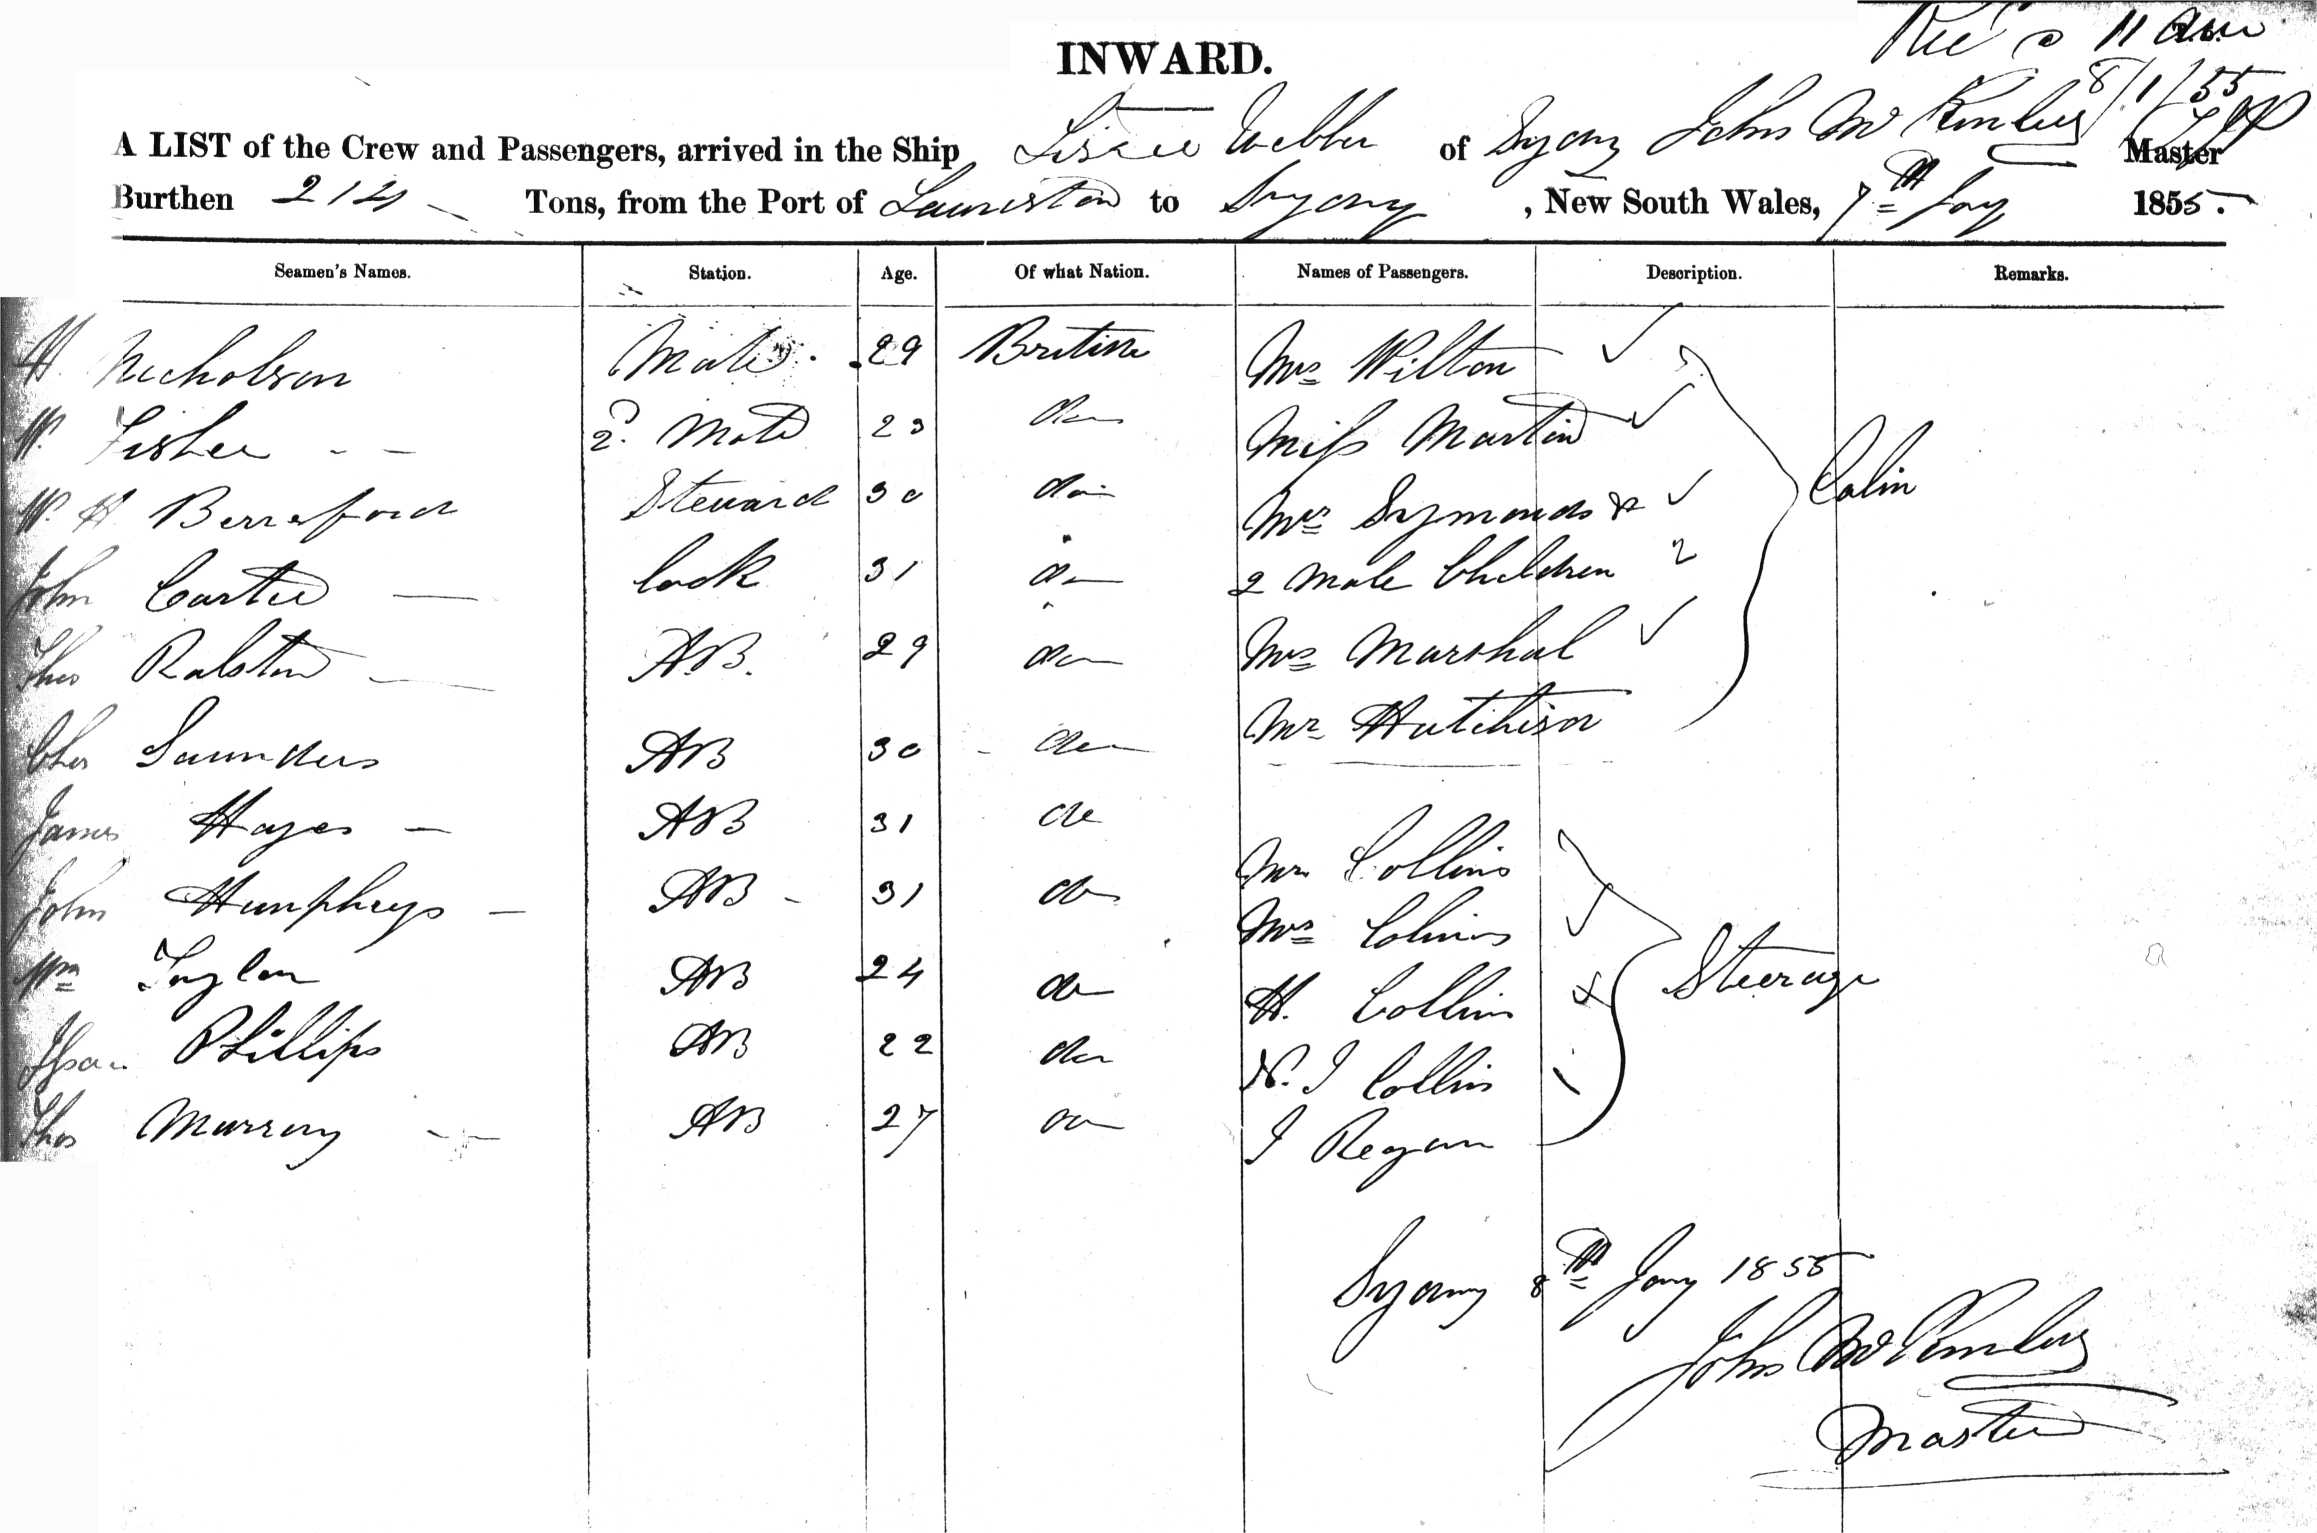 Rec'd 11 am
INWARD.
8/1/55
A LIST of the Crew and Passengers, arrived in the Ship Lizzie Webber of Sydney John McKinlay Master
Burthen 214 Tons, from the Port of Launceston to Sydney, New South Wales, 7th Jany 1855.
Seamen's Names. Station. Age. Of what Nation. Names of Passengers. Description. Remarks.
H. Nicholson Mate. 29 British Mrs Wilton
W. Fisher 2d Mate 23 do Miss Martin
W. H Berresford Steward 30 do Mrs Symonds & Cabin
John Carter Cook 31 do 2 Male Children 2
Thos Ralston AB. 29 do Mrs Marshal
Chas Saunders AB 30 do Mr Hutchison
James Hayes AB 31 do
Mr Collins
John Humphreys AB 31 do Mrs Collins
Wm Taylor AB 24 do H. Collins Steerage
Phillips AB 22 do N. J Collins
Thos Murray AB 27 do J Regan
Sydney 8th Jany 1855
John McKinlay
Master